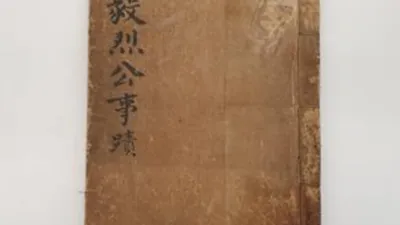 毅烈公事蹟